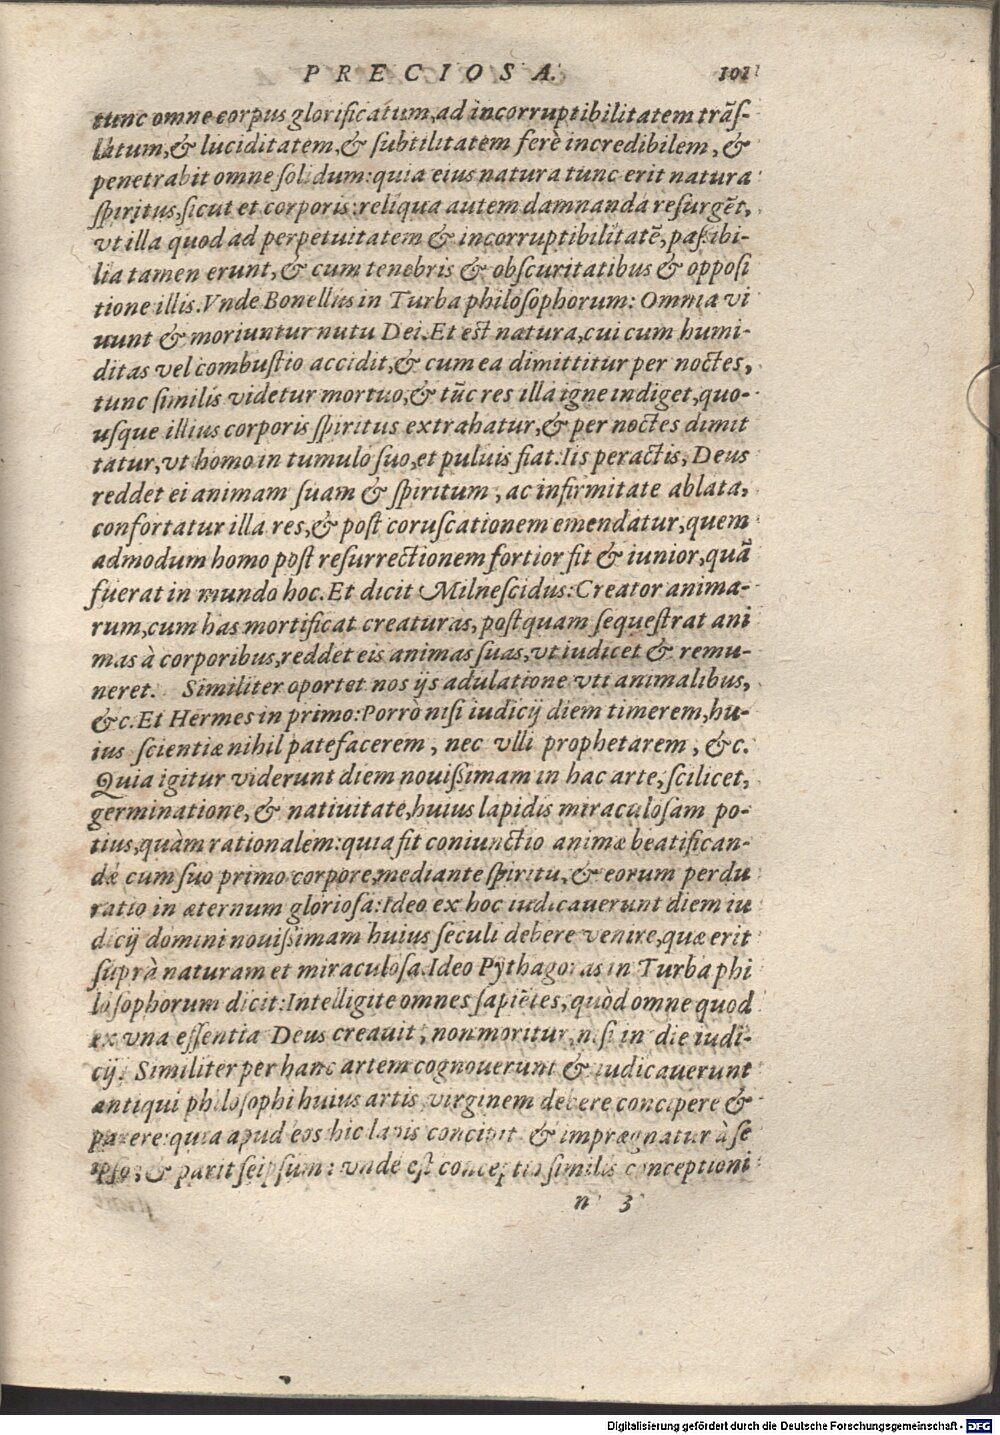 PRECIOSA. 101
tunc omne corpus glorificatum, ad incorruptibilitatem trãſ-
latum, & luciditatem, & ſubtilitatem ferè incredibilem, &
penetrabit omne ſolidum: quia eius natura tunc erit natura
ſpiritus, ſicut et corporis: reliqua autem damnanda reſurgẽt,
vt illa quod ad perpetuitatem & incorruptibilitatẽ, paßibi-
lia tamen erunt, & cum tenebris & obſcuritatibus & oppoſi
tione illis. Vnde Bonellus in Turba philoſophorum: Omnia vi
uunt & moriuntur nutu Dei. Et eſt natura, cui cum humi-
ditas vel combuſtio accidit, & cum ea dimittitur per noctes,
tunc ſimilis videtur mortuo, & tũc res illa igne indiget, quo-
uſque illius corporis ſpiritus extrahatur, & per noctes dimit
tatur, vt homo in tumulo ſuo, et puluis fiat. Iis peractis, Deus
reddet ei animam ſuam & ſpiritum, ac infirmitate ablata,
confortatur illa res, & poſt coruſcationem emendatur, quem
admodum homo poſt reſurrectionem fortior fit & iunior, quã
fuerat in mundo hoc. Et dicit Milneſcidus: Creator anima-
rum, cum has mortificat creaturas, poſtquam ſequeſtrat ani
mas à corporibus, reddet eis animas ſuas, vt iudicet & remu-
neret. Similiter oportet nos ijs adulatione vti animalibus,
&c. Et Hermes in primo: Porrò niſi iudicij diem timerem, hu-
ius ſcientiæ nihil patefacerem, nec vlli prophetarem, &c.
Quia igitur viderunt diem nouißimam in hac arte, ſcilicet,
germinatione, & natiuitate, huius lapidis miraculoſam po-
tius, quàm rationalem: quia fit coniunctio animæ beatifican-
dæ cum ſuo primo corpore, mediante ſpiritu, & eorum perdu
ratio in æternum glorioſa: Ideo ex hoc iudicauerunt diem iu
dicij domini nouißimam huius ſeculi debere venire, quæ erit
ſuprà naturam et miraculoſa. Ideo Pythagoras in Turba phi
loſophorum dicit: Intelligite omnes ſapiẽtes, quòd omne quod
ex vna eſſentia Deus creauit, non moritur, niſi in die iudi-
cij. Similiter per hanc artem cognouerunt & iudicauerunt
antiqui philoſophi huius artis, virginem debere concipere &
parere: quia apud eos hic lapis concipit & imprægnatur à ſe
ipſo, & parit ſeipſum: vnde eſt conceptio ſimilis conceptioni
n 3
Digitalisierung gefördert durch die Deutsche Forschungsgemeinschaft - DFG